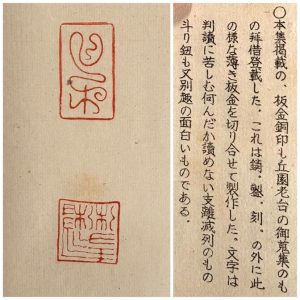 ○本集掲載の、板金銅印も丘園老台の御蒐集のも
の拜借登載した。これは鑄、製、刻、の外に此
の様な薄き板金を切り合せて製作した、文字は
判讀に苦しむ何んだか讀めない支離滅列のもの
斗り鈕も又別趣の面白いものである。